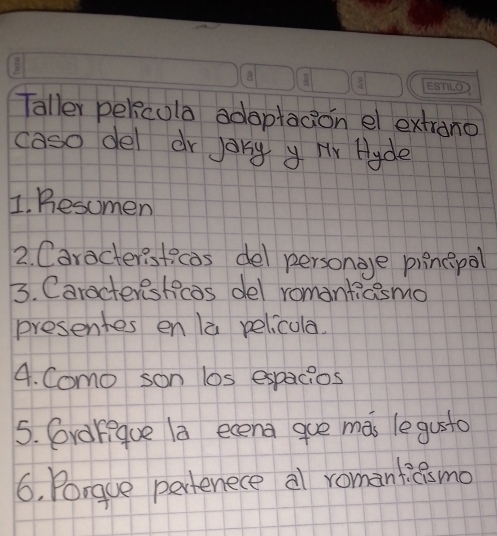 ESTILO
Taller película adaptación el extrano
caso del dr jaky y Mr Hyde
1. Resumen
2. Caracteristicas del personaje principal
3. Caracteristicas del romanticismo
presentes en la pelicula.
4. Como son los espacios
5. Grafique la ecena que más le gusto
6. Porque pertenece al romanticismo